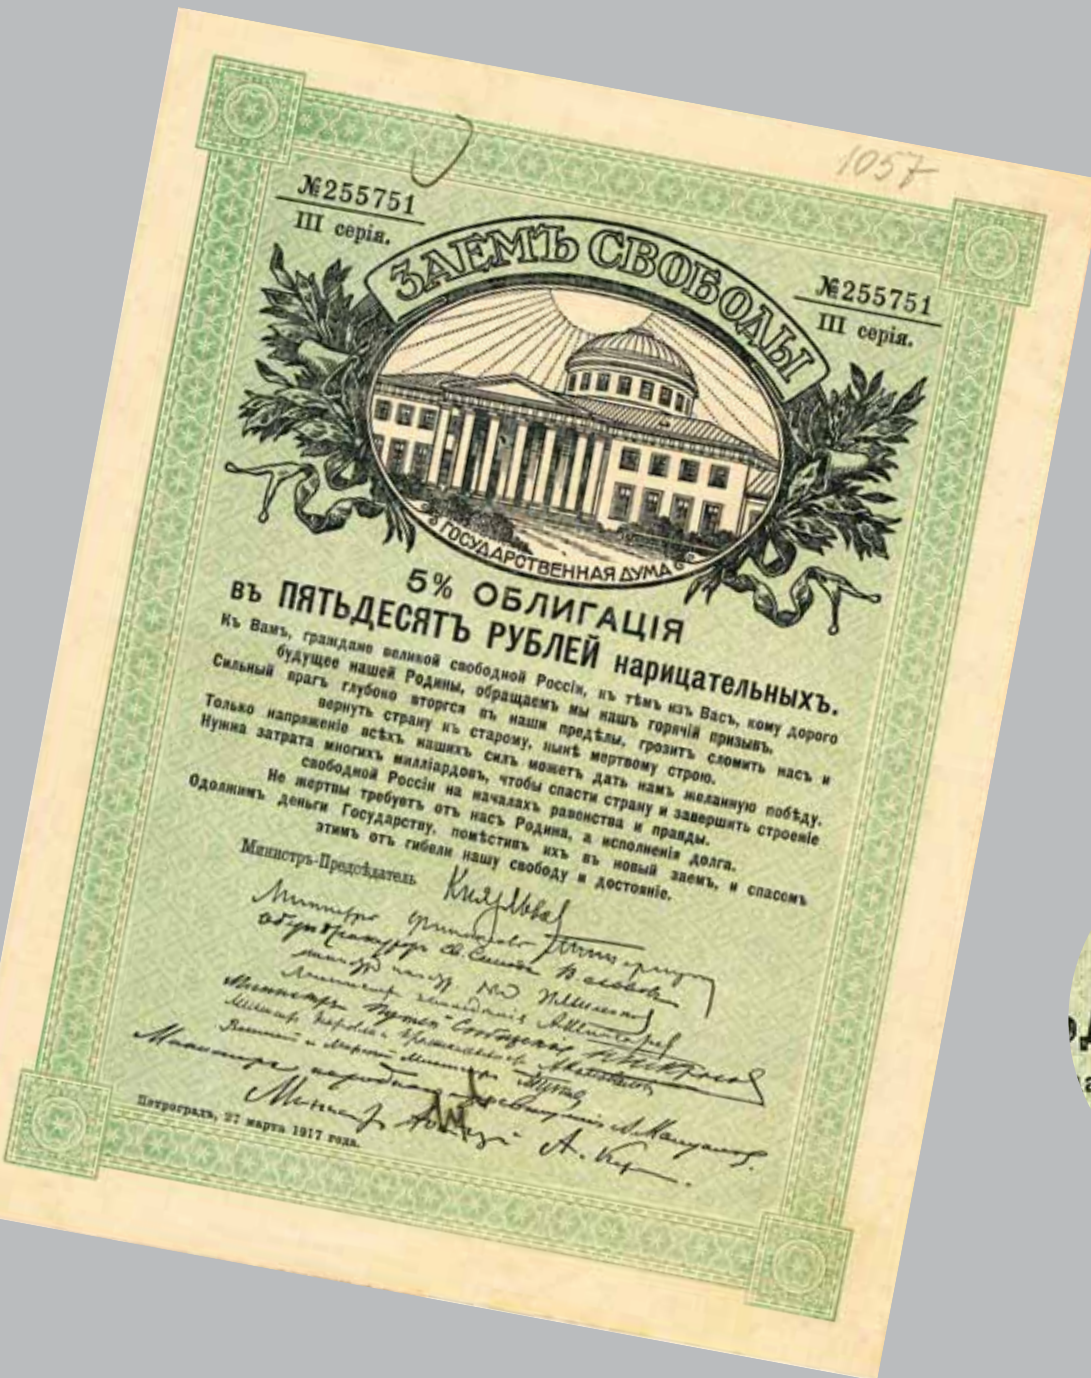 1057
№255751
III серія.
ЗАЕМЪ СВОБОДЫ
№255751
III серія.
ГОСУДАРСТВЕННАЯ ДУМА
5% ОБЛИГАЦІЯ
въ ПЯТЬДЕСЯТЪ РУБЛЕЙ нарицательныхъ.
Къ Вамъ, граждане великой свободной Россіи, къ тѣмъ изъ Васъ, кому дорого
будущее нашей Родины, обращаемъ мы нашъ горячій призывъ.
Сильный врагъ глубоко вторгся въ наши предѣлы, грозитъ сломить насъ и
вернуть страну къ старому, нынѣ мертвому строю.
Только напряженіе всѣхъ нашихъ силъ можетъ дать намъ желанную побѣду.
Нужна затрата многихъ милліардовъ, чтобы спасти страну и завершить строеніе
свободной Россіи на началахъ равенства и правды.
Не жертвы требуетъ отъ насъ Родина, а исполненія долга.
Одолжимъ деньги Государству, помѣстивъ ихъ въ новый заемъ, и спасемъ
этимъ отъ гибели нашу свободу и достояніе.
Министръ-Предсѣдатель
Министръ финансовъ
Министръ Путей Сообщенія
Министръ народнаго просвѣщенія А. Мануйловъ.
Петроградъ, 27 марта 1917 года.